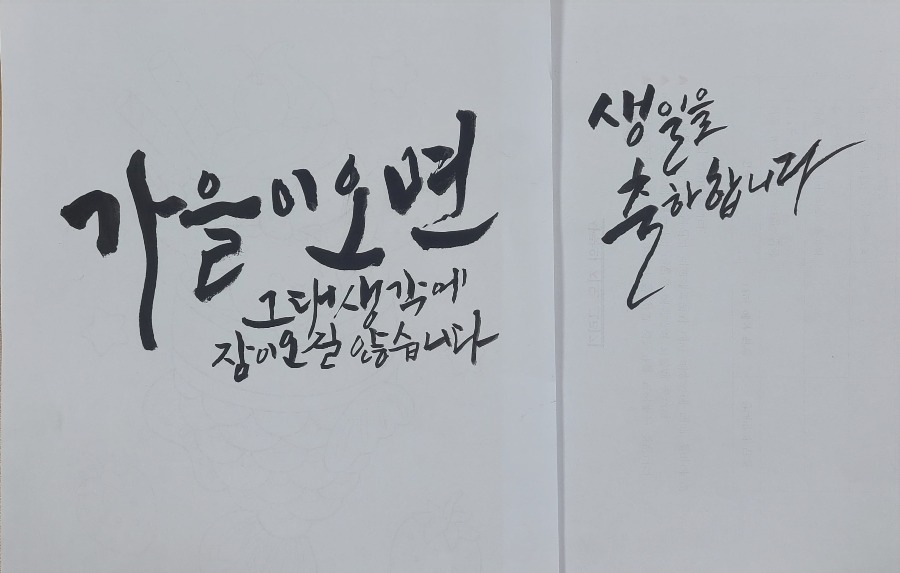 가을이오면
그대생각에
잠이오질 않습니다
생일을
축하합니다